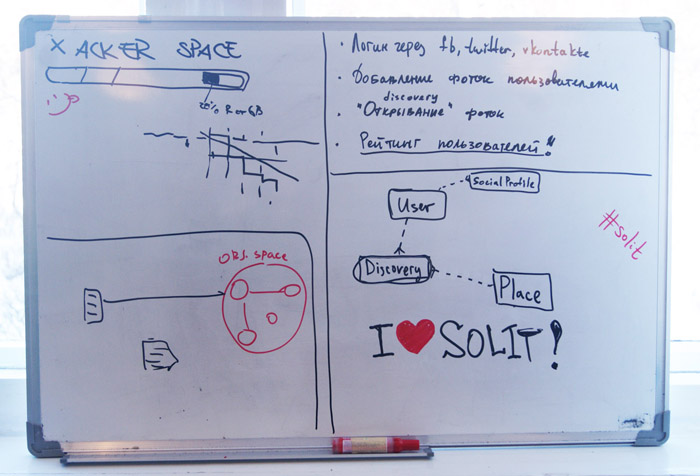 XACKER SPACE
20% R or GB
OBJ. space
• Логин через fb, twitter, vkontakte
• Добавление фоток пользователями
discovery
• "Открывание" фоток
• Рейтинг пользователей!
Social Profile
User
Discovery
Place
#solit
I ❤ SOLIT!